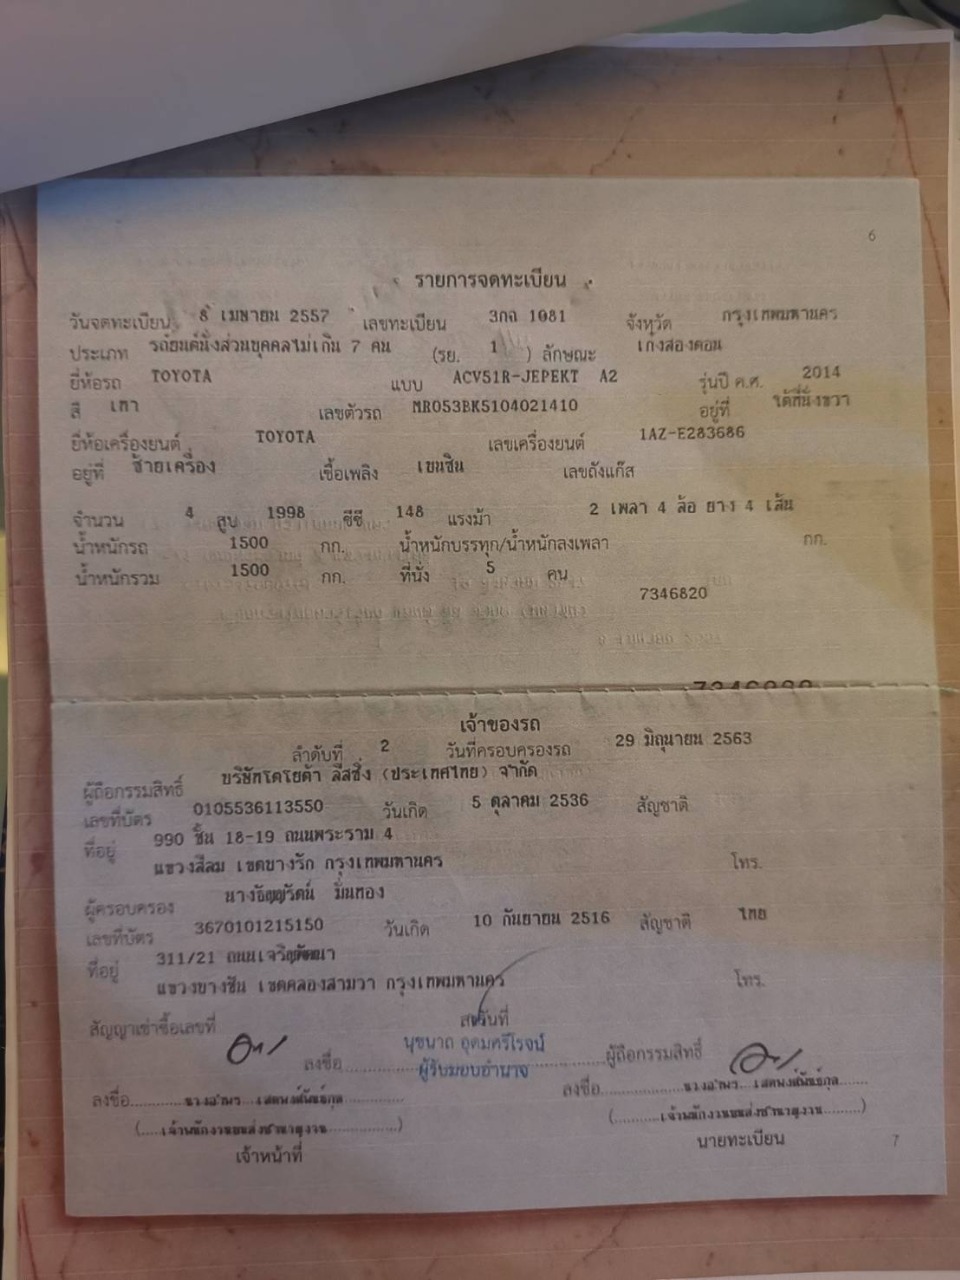 6
รายการจดทะเบียน
วันจดทะเบียน 8 เมษายน 2557 เลขทะเบียน 3กฉ 1081 จังหวัด กรุงเทพมหานคร
ประเภท รถยนต์นั่งส่วนบุคคลไม่เกิน 7 คน (รย. 1 ) ลักษณะ เก๋งสองตอน
ยี่ห้อรถ TOYOTA แบบ ACV51R-JEPEKT A2 รุ่นปี ค.ศ. 2014
สี เทา เลขตัวรถ MR053BK5104021410 อยู่ที่ ใต้ที่นั่งขวา
ยี่ห้อเครื่องยนต์ TOYOTA เลขเครื่องยนต์ 1AZ-E283686
อยู่ที่ ซ้ายเครื่อง เชื้อเพลิง เบนซิน เลขถังแก๊ส
จำนวน 4 สูบ 1998 ซีซี 148 แรงม้า 2 เพลา 4 ล้อ ยาง 4 เส้น
น้ำหนักรถ 1500 กก. น้ำหนักบรรทุก/น้ำหนักลงเพลา กก.
น้ำหนักรวม 1500 กก. ที่นั่ง 5 คน
7346820
เจ้าของรถ
ลำดับที่ 2 วันที่ครอบครองรถ 29 มิถุนายน 2563
ผู้ถือกรรมสิทธิ์ บริษัทโตโยต้า ลีสซิ่ง (ประเทศไทย) จำกัด
เลขที่บัตร 0105536113550 วันเกิด 5 ตุลาคม 2536 สัญชาติ
ที่อยู่ 990 ชั้น 18-19 ถนนพระราม 4
แขวงสีลม เขตบางรัก กรุงเทพมหานคร โทร.
ผู้ครอบครอง นางธัญญรัตน์ มั่นทอง
เลขที่บัตร 3670101215150 วันเกิด 10 กันยายน 2516 สัญชาติ ไทย
ที่อยู่ 311/21 ถนนเจริญพัฒนา
แขวงบางชัน เขตคลองสามวา กรุงเทพมหานคร โทร.
สัญญาเช่าซื้อเลขที่ ลงวันที่
นุชนาถ อุดมศรีโรจน์
ลงชื่อ ผู้รับมอบอำนาจ ผู้ถือกรรมสิทธิ์
ลงชื่อ ลงชื่อ
(....เจ้าพนักงานขนส่งชำนาญงาน....) (....เจ้าพนักงานขนส่งชำนาญงาน....)
เจ้าหน้าที่ นายทะเบียน
7